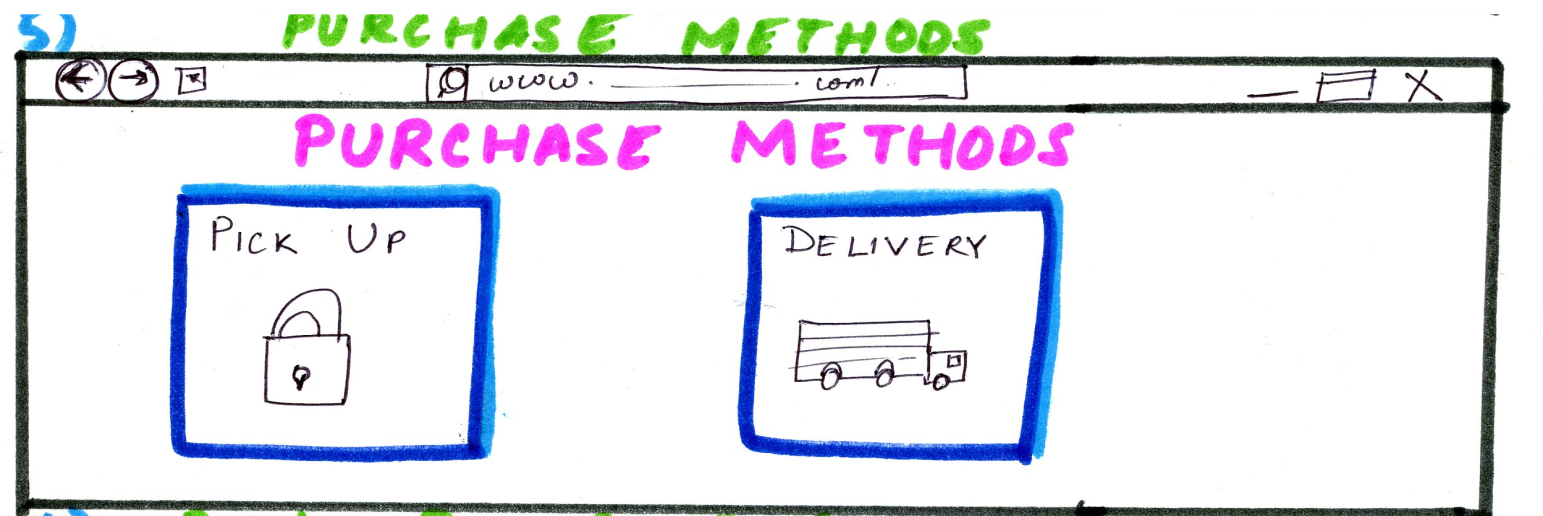 5) PURCHASE METHODS
www. ———— . com/.
PURCHASE METHODS
PICK UP
DELIVERY